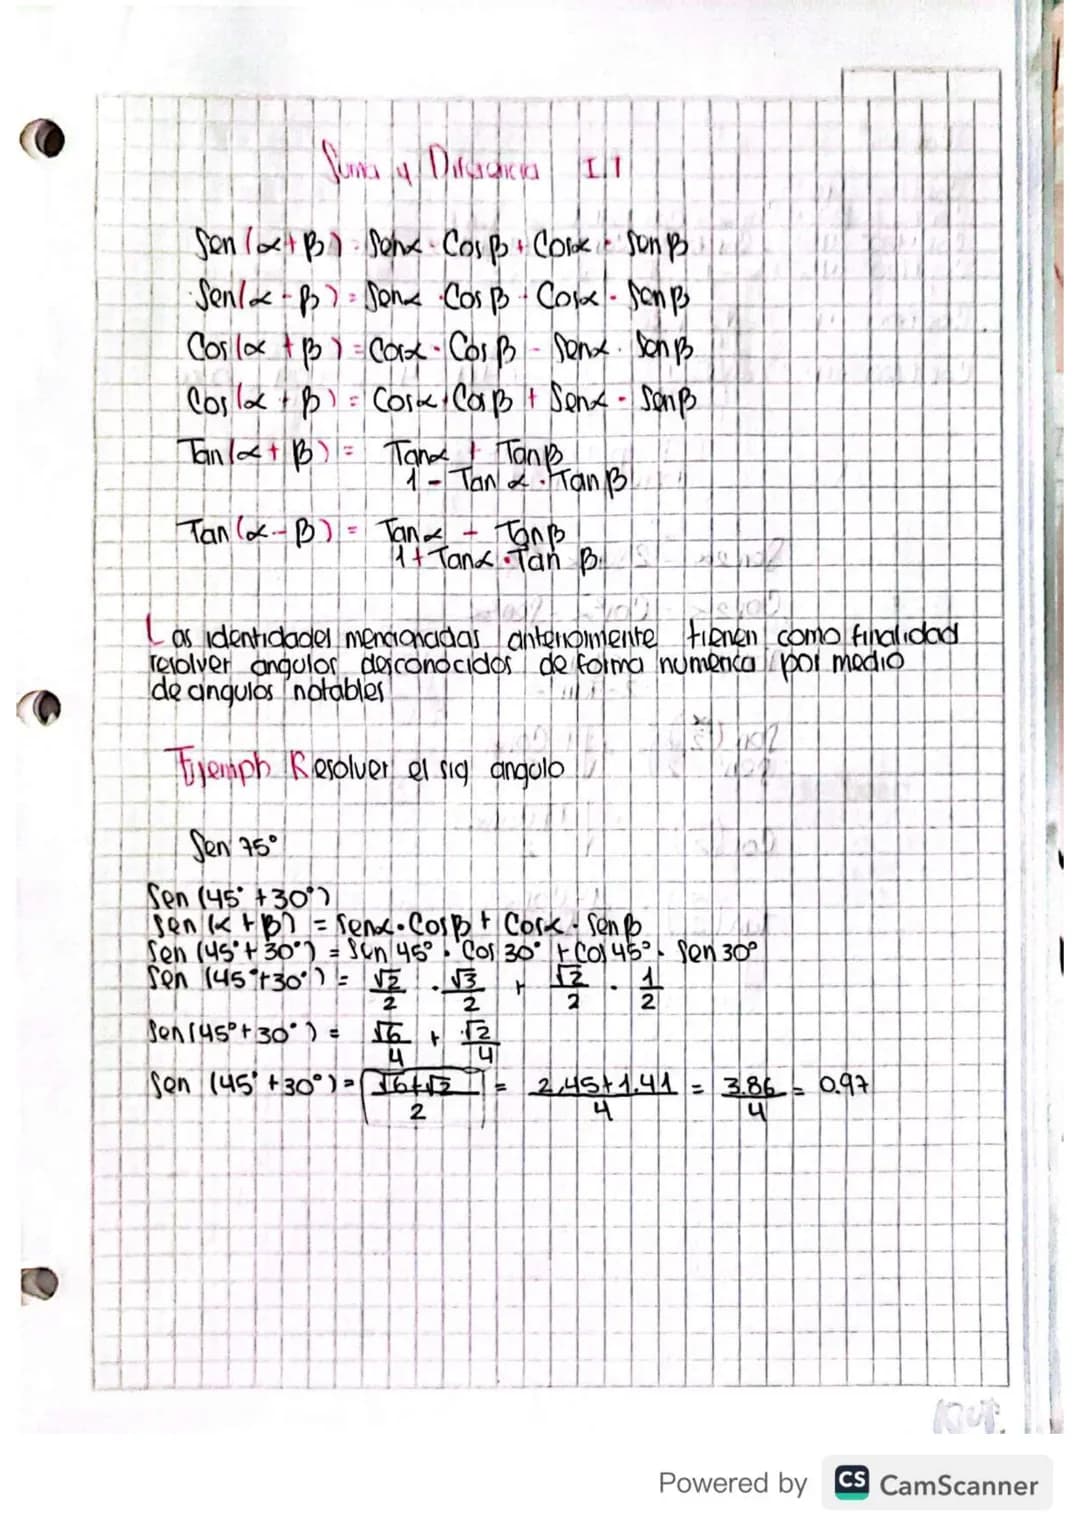 Suma y Diferencia I.I
Sen (α+β) = Senα · Cosβ + Cosα · Senβ
Sen(α - β) = Senα · Cosβ - Cosα · Senβ
Cos (α + β) = Cosα · Cosβ - Senα · Senβ
Cos (α + β) = Cosα · Cosβ + Senα · Senβ
Tan(α + β) = Tanα + Tanβ
1 - Tan α · Tan β
Tan (α - β) = Tanα - Tanβ
1 + Tanα · Tan β
Las identidades mencionadas anteriormente tienen como finalidad
resolver angulos desconocidos de forma numerica por medio
de angulos notables
Ejemplo Resolver el sig angulo
Sen 75°
Sen (45° + 30°)
Sen (α + β) = Senα · Cosβ + Cosα · Senβ
Sen (45° + 30°) = Sen 45° · Cos 30° + Cos 45° · Sen 30°
Sen (45° + 30°) = √2/2 · √3/2 + √2/2 · 1/2
Sen (45° + 30°) = √6/4 + √2/4
Sen (45° + 30°) = √6+√2/2 = 2.45+1.41/4 = 3.86/4 = 0.97
Powered by CS CamScanner